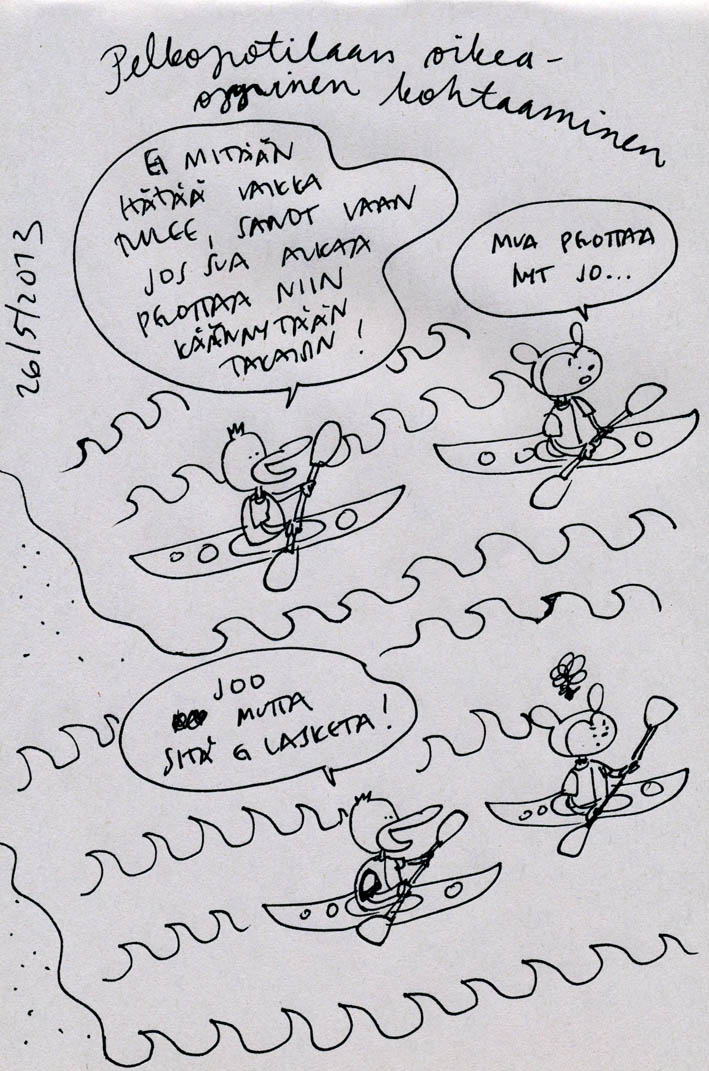 Pelkopotilaan oikea-
oppinen kohtaaminen
26/5/2013
EI MITÄÄN
HÄTÄÄ VAIKKA
TULEE, SANOT VAAN
JOS SUA ALKAA
PELOTTAA NIIN
KÄÄNNYTÄÄN
TAKAISIN!
MUA PELOTTAA
NYT JO...
JOO
MUTTA
SITÄ EI LASKETA!